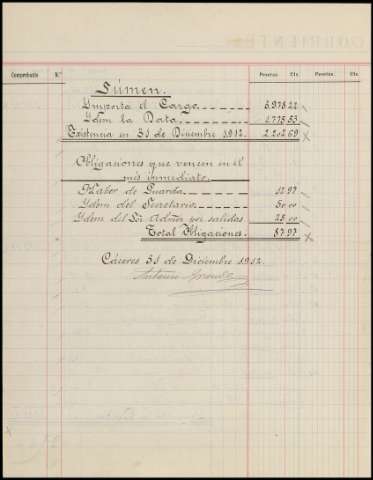 Comprobante N.º Pesetas Cts. Pesetas Cts.
Súmen.
Importa el Cargo 3.978 22
Ydem la Data 1.775 53
Existencia en 31 de Diciembre 1912. 2.202 69
Obligaciones que vencen en el
mes inmediato.
Haber de Guarda. 12 97
Ydem del Secretario 50 00
Ydem del Sr. Admor por salidas 25 00
Total Obligaciones. 87 97
Cáceres 31 de Diciembre 1912
Antonio